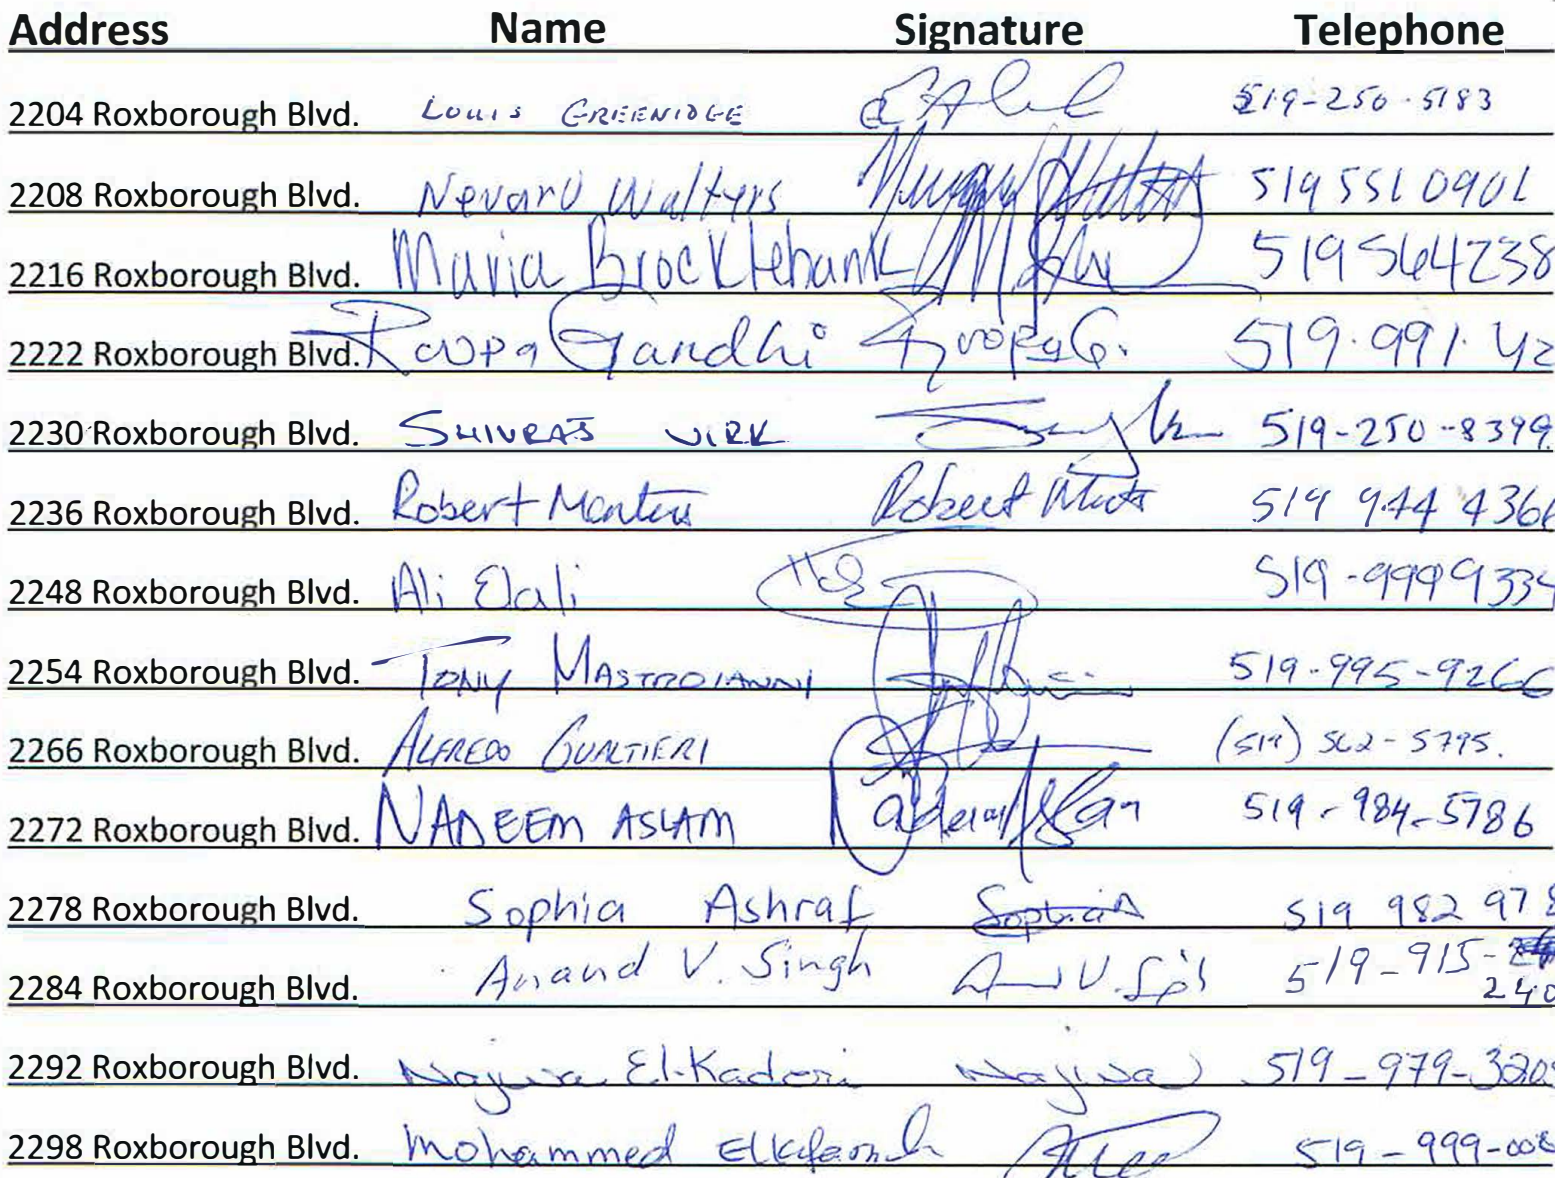 Address Name Signature Telephone
2204 Roxborough Blvd. Louis GREENIDGE 519-250-5183
2208 Roxborough Blvd. Nevard Walters 519 551 0901
2216 Roxborough Blvd. Maria Brocklebank 519 564 238
2222 Roxborough Blvd. Roopa Gandhi Roopa G. 519.991.42
2230 Roxborough Blvd. SHIVRAJ VIRK 519-250-8399
2236 Roxborough Blvd. Robert 519 944 4366
2248 Roxborough Blvd. Ali Dali 519-999 9334
2254 Roxborough Blvd. TONY MASTROIANNI 519-995-9266
2266 Roxborough Blvd. ALFREDO GUALTIERI (519) 562-5795.
2272 Roxborough Blvd. NADEEM ASLAM 519-984-5786
2278 Roxborough Blvd. Sophia Ashraf Sophia 519 982 978
2284 Roxborough Blvd. Anand V. Singh 519-915-
240
2292 Roxborough Blvd. Najwa El-Kaderi Najwa 519-979-320
2298 Roxborough Blvd. Mohammed 519-999-008